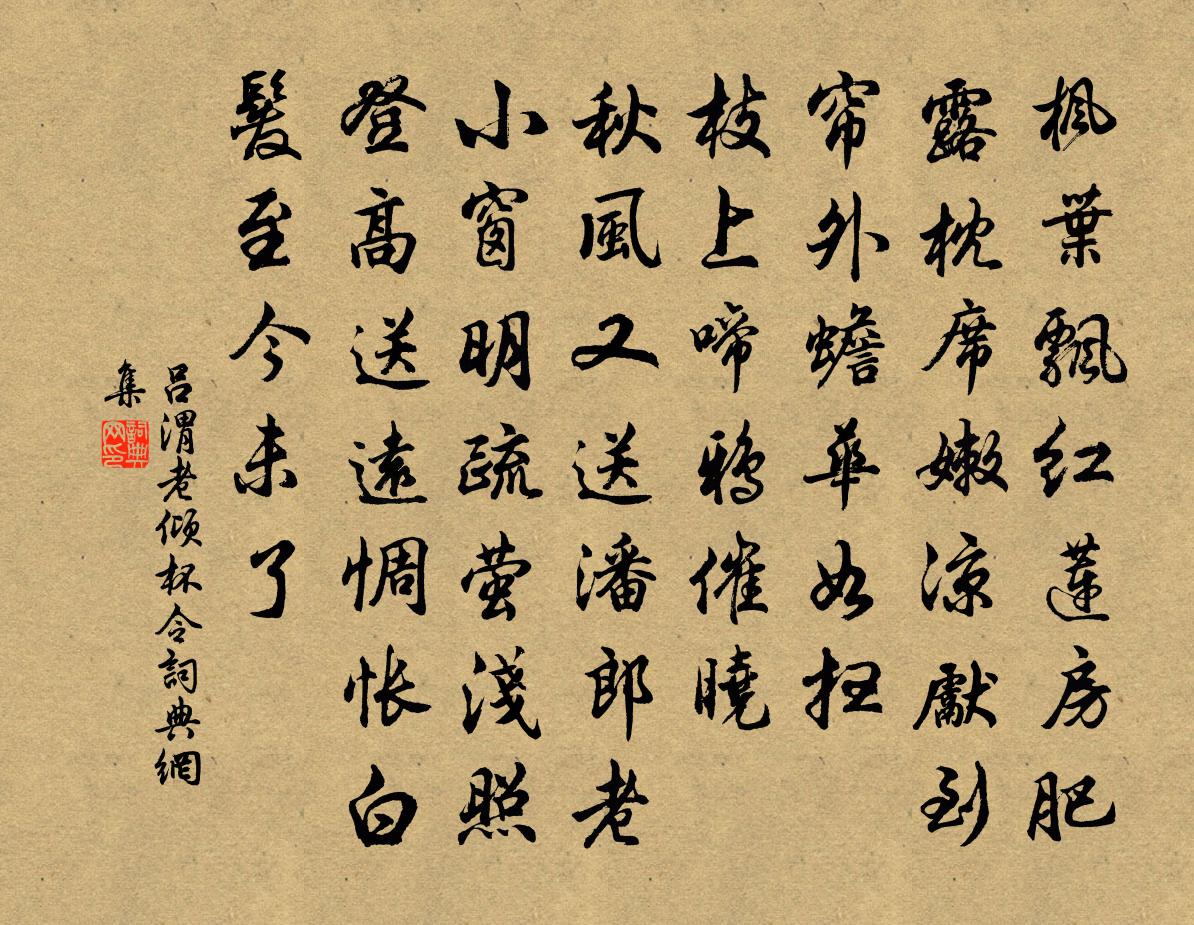 楓葉飄红蓮房肥
露枕席嫩凉獻到
帘外蟾華如扫
枝上啼鸦催曉
秋風又送潘郎老
小窗明疏萤淺照
登高送遠惆怅白
髮至今未了
吕渭老倾杯令詞典網
集
詞典网印